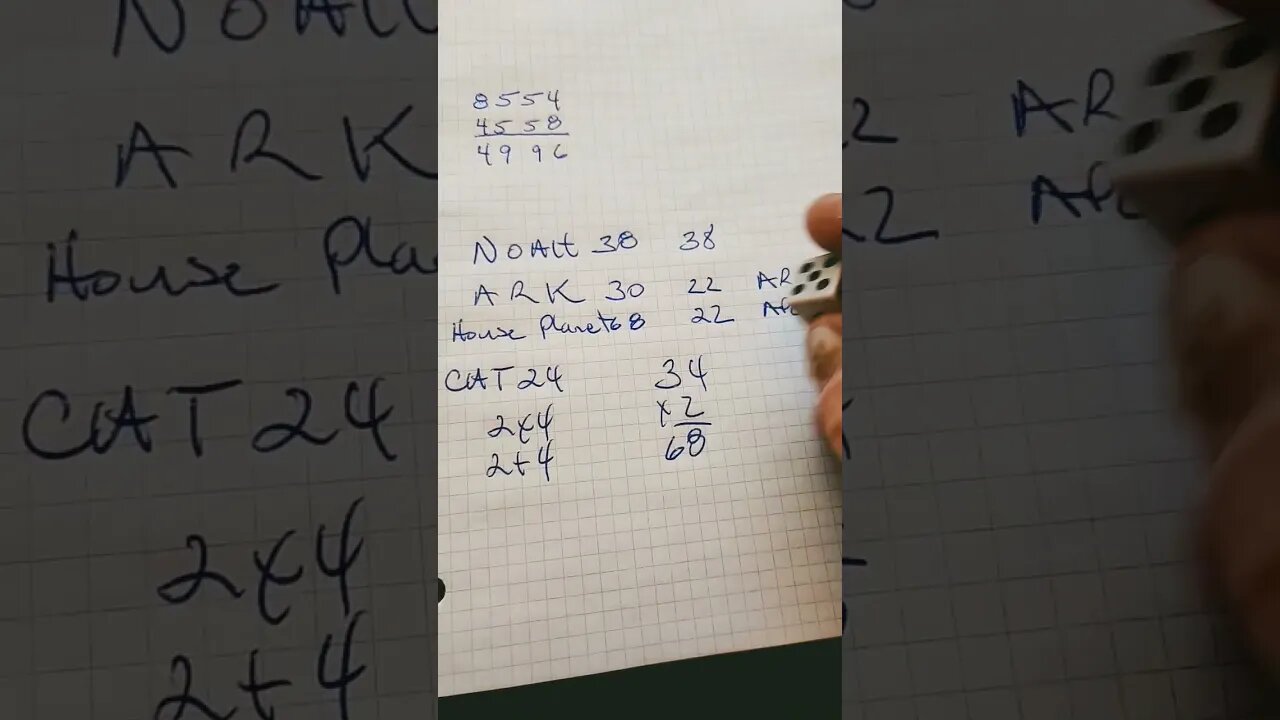 8554
4558
4996
NOAH 38 38
ARK 30 22 AR
House Planet 68 22
CAT 24 34
2x4 x2
2+4 68